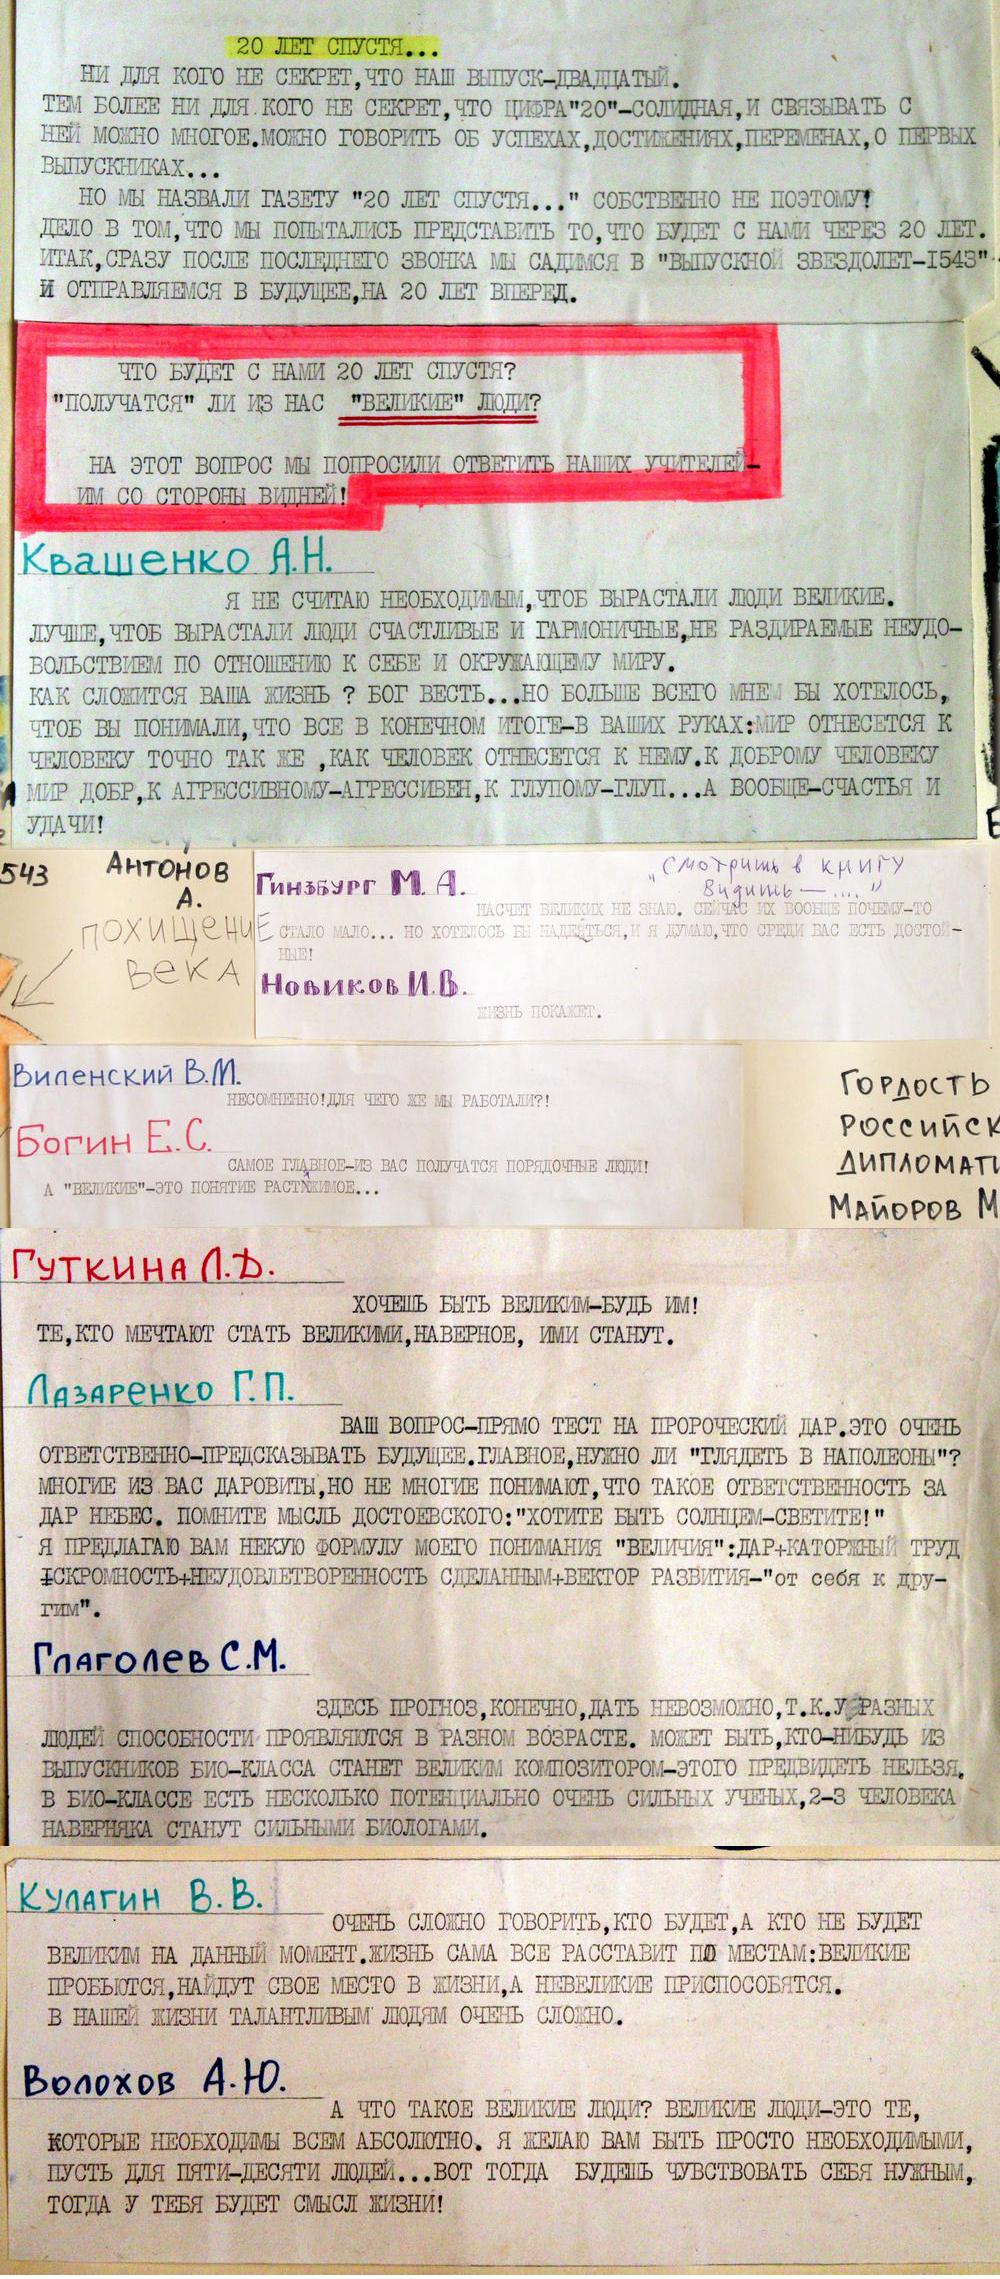 20 ЛЕТ СПУСТЯ...
НИ ДЛЯ КОГО НЕ СЕКРЕТ,ЧТО НАШ ВЫПУСК-ДВАДЦАТЫЙ.
ТЕМ БОЛЕЕ НИ ДЛЯ КОГО НЕ СЕКРЕТ,ЧТО ЦИФРА"20"-СОЛИДНАЯ,И СВЯЗЫВАТЬ С
НЕЙ МОЖНО МНОГОЕ.МОЖНО ГОВОРИТЬ ОБ УСПЕХАХ,ДОСТИЖЕНИЯХ,ПЕРЕМЕНАХ,О ПЕРВЫХ
ВЫПУСКНИКАХ...
НО МЫ НАЗВАЛИ ГАЗЕТУ "20 ЛЕТ СПУСТЯ..." СОБСТВЕННО НЕ ПОЭТОМУ!
ДЕЛО В ТОМ,ЧТО МЫ ПОПЫТАЛИСЬ ПРЕДСТАВИТЬ ТО,ЧТО БУДЕТ С НАМИ ЧЕРЕЗ 20 ЛЕТ.
ИТАК,СРАЗУ ПОСЛЕ ПОСЛЕДНЕГО ЗВОНКА МЫ САДИМСЯ В "ВЫПУСКНОЙ ЗВЕЗДОЛЕТ-I543"
И ОТПРАВЛЯЕМСЯ В БУДУЩЕЕ,НА 20 ЛЕТ ВПЕРЕД.
ЧТО БУДЕТ С НАМИ 20 ЛЕТ СПУСТЯ?
"ПОЛУЧАТСЯ" ЛИ ИЗ НАС "ВЕЛИКИЕ" ЛЮДИ?
НА ЭТОТ ВОПРОС МЫ ПОПРОСИЛИ ОТВЕТИТЬ НАШИХ УЧИТЕЛЕЙ-
ИМ СО СТОРОНЫ ВИДНЕЙ!
Квашенко А.Н.
Я НЕ СЧИТАЮ НЕОБХОДИМЫМ,ЧТОБ ВЫРАСТАЛИ ЛЮДИ ВЕЛИКИЕ.
ЛУЧШЕ,ЧТОБ ВЫРАСТАЛИ ЛЮДИ СЧАСТЛИВЫЕ И ГАРМОНИЧНЫЕ,НЕ РАЗДИРАЕМЫЕ НЕУДО-
ВОЛЬСТВИЕМ ПО ОТНОШЕНИЮ К СЕБЕ И ОКРУЖАЮЩЕМУ МИРУ.
КАК СЛОЖИТСЯ ВАША ЖИЗНЬ ? БОГ ВЕСТЬ...НО БОЛЬШЕ ВСЕГО МНЕ БЫ ХОТЕЛОСЬ,
ЧТОБ ВЫ ПОНИМАЛИ,ЧТО ВСЕ В КОНЕЧНОМ ИТОГЕ-В ВАШИХ РУКАХ:МИР ОТНЕСЕТСЯ К
ЧЕЛОВЕКУ ТОЧНО ТАК ЖЕ ,КАК ЧЕЛОВЕК ОТНЕСЕТСЯ К НЕМУ.К ДОБРОМУ ЧЕЛОВЕКУ
МИР ДОБР,К АГРЕССИВНОМУ-АГРЕССИВЕН,К ГЛУПОМУ-ГЛУП...А ВООБЩЕ-СЧАСТЬЯ И
УДАЧИ!
543 АНТОНОВ
А.
ПОХИЩЕНИЕ
ВЕКА
Гинзбург М.А.
"Смотришь в книгу
видишь — ...."
НАСЧЕТ ВЕЛИКИХ НЕ ЗНАЮ. СЕЙЧАС ИХ ВООБЩЕ ПОЧЕМУ-ТО
СТАЛО МАЛО... НО ХОТЕЛОСЬ БЫ НАДЕЯТЬСЯ,И Я ДУМАЮ,ЧТО СРЕДИ ВАС ЕСТЬ ДОСТОЙ-
НЫЕ!
Новиков И.В.
ЖИЗНЬ ПОКАЖЕТ.
Виленский В.М.
НЕСОМНЕННО!ДЛЯ ЧЕГО ЖЕ МЫ РАБОТАЛИ?!
Богин Е.С.
САМОЕ ГЛАВНОЕ-ИЗ ВАС ПОЛУЧАТСЯ ПОРЯДОЧНЫЕ ЛЮДИ!
А "ВЕЛИКИЕ"-ЭТО ПОНЯТИЕ РАСТЯЖИМОЕ...
ГОРДОСТЬ
РОССИЙСК
ДИПЛОМАТИ
МАЙОРОВ М
Гуткина Л.Д.
ХОЧЕШЬ БЫТЬ ВЕЛИКИМ-БУДЬ ИМ!
ТЕ,КТО МЕЧТАЮТ СТАТЬ ВЕЛИКИМИ,НАВЕРНОЕ, ИМИ СТАНУТ.
Лазаренко Г.П.
ВАШ ВОПРОС-ПРЯМО ТЕСТ НА ПРОРОЧЕСКИЙ ДАР.ЭТО ОЧЕНЬ
ОТВЕТСТВЕННО-ПРЕДСКАЗЫВАТЬ БУДУЩЕЕ.ГЛАВНОЕ,НУЖНО ЛИ "ГЛЯДЕТЬ В НАПОЛЕОНЫ"?
МНОГИЕ ИЗ ВАС ДАРОВИТЫ,НО НЕ МНОГИЕ ПОНИМАЮТ,ЧТО ТАКОЕ ОТВЕТСТВЕННОСТЬ ЗА
ДАР НЕБЕС. ПОМНИТЕ МЫСЛЬ ДОСТОЕВСКОГО:"ХОТИТЕ БЫТЬ СОЛНЦЕМ-СВЕТИТЕ!"
Я ПРЕДЛАГАЮ ВАМ НЕКУЮ ФОРМУЛУ МОЕГО ПОНИМАНИЯ "ВЕЛИЧИЯ":ДАР+КАТОРЖНЫЙ ТРУД
+СКРОМНОСТЬ+НЕУДОВЛЕТВОРЕННОСТЬ СДЕЛАННЫМ+ВЕКТОР РАЗВИТИЯ-"от себя к дру-
гим".
Глаголев С.М.
ЗДЕСЬ ПРОГНОЗ,КОНЕЧНО,ДАТЬ НЕВОЗМОЖНО,Т.К.У РАЗНЫХ
ЛЮДЕЙ СПОСОБНОСТИ ПРОЯВЛЯЮТСЯ В РАЗНОМ ВОЗРАСТЕ. МОЖЕТ БЫТЬ,КТО-НИБУДЬ ИЗ
ВЫПУСКНИКОВ БИО-КЛАССА СТАНЕТ ВЕЛИКИМ КОМПОЗИТОРОМ-ЭТОГО ПРЕДВИДЕТЬ НЕЛЬЗЯ.
В БИО-КЛАССЕ ЕСТЬ НЕСКОЛЬКО ПОТЕНЦИАЛЬНО ОЧЕНЬ СИЛЬНЫХ УЧЕНЫХ,2-3 ЧЕЛОВЕКА
НАВЕРНЯКА СТАНУТ СИЛЬНЫМИ БИОЛОГАМИ.
Кулагин В.В.
ОЧЕНЬ СЛОЖНО ГОВОРИТЬ,КТО БУДЕТ,А КТО НЕ БУДЕТ
ВЕЛИКИМ НА ДАННЫЙ МОМЕНТ.ЖИЗНЬ САМА ВСЕ РАССТАВИТ ПО МЕСТАМ:ВЕЛИКИЕ
ПРОБЬЮТСЯ,НАЙДУТ СВОЕ МЕСТО В ЖИЗНИ,А НЕВЕЛИКИЕ ПРИСПОСОБЯТСЯ.
В НАШЕЙ ЖИЗНИ ТАЛАНТЛИВЫМ ЛЮДЯМ ОЧЕНЬ СЛОЖНО.
Волохов А.Ю.
А ЧТО ТАКОЕ ВЕЛИКИЕ ЛЮДИ? ВЕЛИКИЕ ЛЮДИ-ЭТО ТЕ,
КОТОРЫЕ НЕОБХОДИМЫ ВСЕМ АБСОЛЮТНО. Я ЖЕЛАЮ ВАМ БЫТЬ ПРОСТО НЕОБХОДИМЫМИ,
ПУСТЬ ДЛЯ ПЯТИ-ДЕСЯТИ ЛЮДЕЙ...ВОТ ТОГДА БУДЕШЬ ЧУВСТВОВАТЬ СЕБЯ НУЖНЫМ,
ТОГДА У ТЕБЯ БУДЕТ СМЫСЛ ЖИЗНИ!